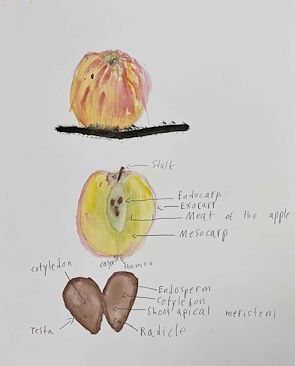 Stalk
Endocarp
Exocarp
Meat of the apple
Mesocarp
cotyledon
Endosperm
Cotyledon
Shoot apical meristem
Testa
Radicle